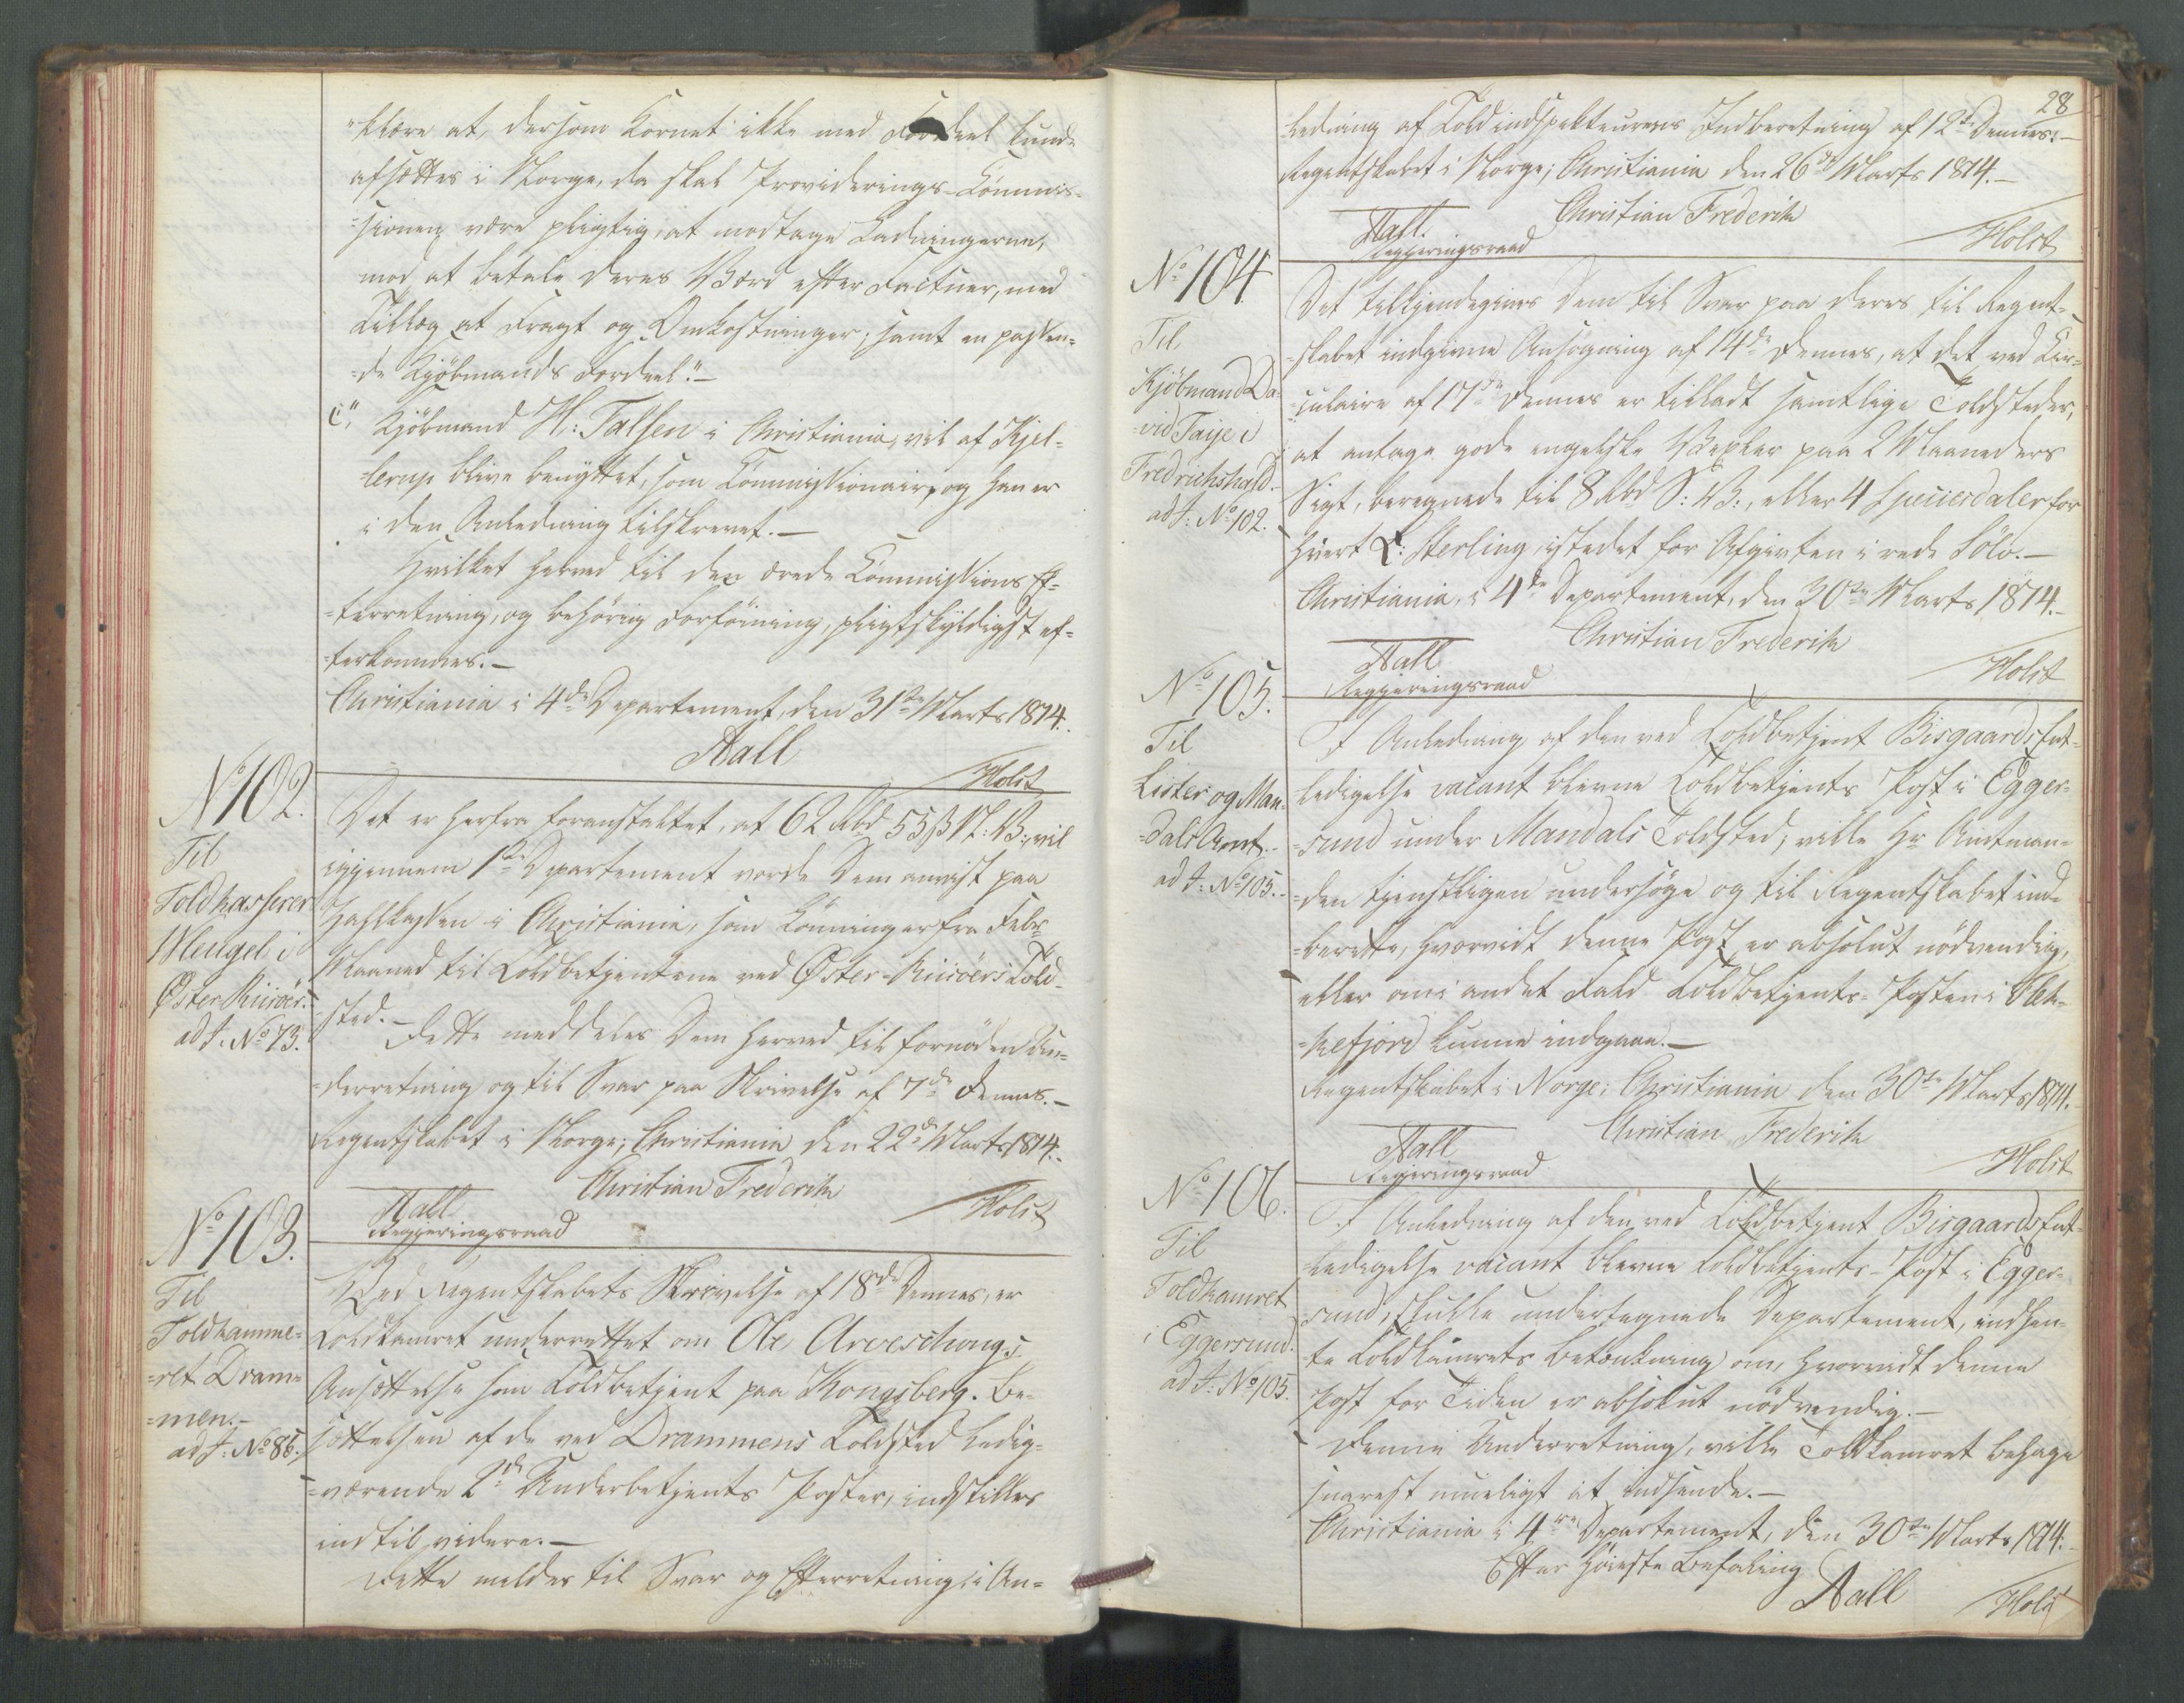 "klære at, dersom Kornet ikke med Fordeel kund=
afsættes i Norge, da skal Providerings-Commis-
=sionen være pligtig, at modtage Ladningerne,
mod at betale deres Værd efter Factuer, med
Tillæg at Fragt og Omkostninger, samt en passen=
=de Kjöbmands Fordeel."-
c, Kjöbmand N: Falsen i Christiania, vil af Kjel=
=lerup blive benyttet, som Commissionair, og han er
i den Anledning tilskrevet.-
Hvilket herved til den ærede Commissions Ef=
=terretning, og behörig Forföining, pligtskyldigst ef=
=terkommes.-
Christiania i 4de Departement, den 31te Marts 1814.
Aall
Holst
No 102.
Til
Toldkasserer
Wleugel i
Øster Riisöer.
ad J: No 73.
Det er herfra foranstaltet, at 62 Rbd 55 ß N: V:, vil
igjennem 1ste Departement vorde Dem anvist paa
Zahlkassen i Christiania, som Lönninger fra Febr
Maaned til Toldbetjentene ved Øster-Riisöers Told-
sted.-
Dette meddeles Dem herved til fornöden Un=
=derretning og til Svar paa Skrivelse af 7de dennes.-
Regentskabet i Norge, Christiania den 22de Marts 1814.
Christian Frederik
Aall
Regjeringsraad
Holst
No 103.
Til
Toldkamme=
=ret Dram=
=men.-
ad J: No 86.
Ved Regentskabets Skrivelse af 18de Dennes, er
Toldkamret underrettet om Ole Arveschougs
Ansættelse som Toldbetjent paa Kongsberg. Be-
sættelsen af de ved Drammens Toldsted ledig=
=værende 2de Underbetjents Poster, indstilles
indtil videre.-
Dette meldes til Svar og Efterretning, i An=
28
ledning af Toldindspekteurens Indberetning af 12te Dennes.-
Regentskabet i Norge, Christiania den 26de Marts 1814.-
Christian Frederik
Aall.
Regjeringsraad
Holst
No 104
Til
Kjöbmand Da-
=vid Taije i
Fredrichshald.
ad J: No 102.
Det tilkjendegives Dem til Svar paa Deres til Regent-
=skabet indgivne Ansögning af 14de Dennes, at det ved Cir=
=culaire af 17de Dennes er tilladt samtlige Toldsteder,
at antage gode engelske Vexler paa 2 Maaneders
Sigt, beregnede til 8 Rbd S: V:, eller 4 Speciesdaler for
hvert £: Sterling, istedet for Afgivten i rede Sölv.-
Christiania, i 4de Departement, den 30te Marts 1814.-
Christian Frederik
Aall
Regjeringsraad
Holst
No 105.
Til
Lister og Man-
=dals Amt.-
ad J: No 105.-
I Anledning af den ved Toldbetjent Bisgaards Ent-
ledigelse vacant blevne Toldbetjents Post i Egger=
=sund under Mandals Toldsted, ville Hr Amtman=
=den tjenstligen undersöge og til Regentskabet ind=
=berette, hvorvidt denne Post er absolut nödvendig,
eller om i andet Fald Toldbetjents-Posten i Flek-
=kefjord kunne indgaae.-
Regentskabet i Norge, Christiania den 30te Marts 1814.-
Christian Frederik
Aall
Regjeringsraad
Holst
No 106.
Til
Toldkamret
i Eggersund.
ad J: No 105.
I Anledning af den, ved Toldbetjent Bisgaards Ent-
ledigelse vacant blevne Toldbetjents-Post i Egger=
sund, skulle undertegnede Departement, indhen-
te Toldkamrets Betænkning om, hvorvidt denne
Post for Tiden er absolut nödvendig.-
Denne Underretning, ville Toldkamret behage
snarest mueligt at indsende.-
Christiania i 4de Departement, den 30te Marts 1814.-
Efter Höieste Befaling
Aall
Holst